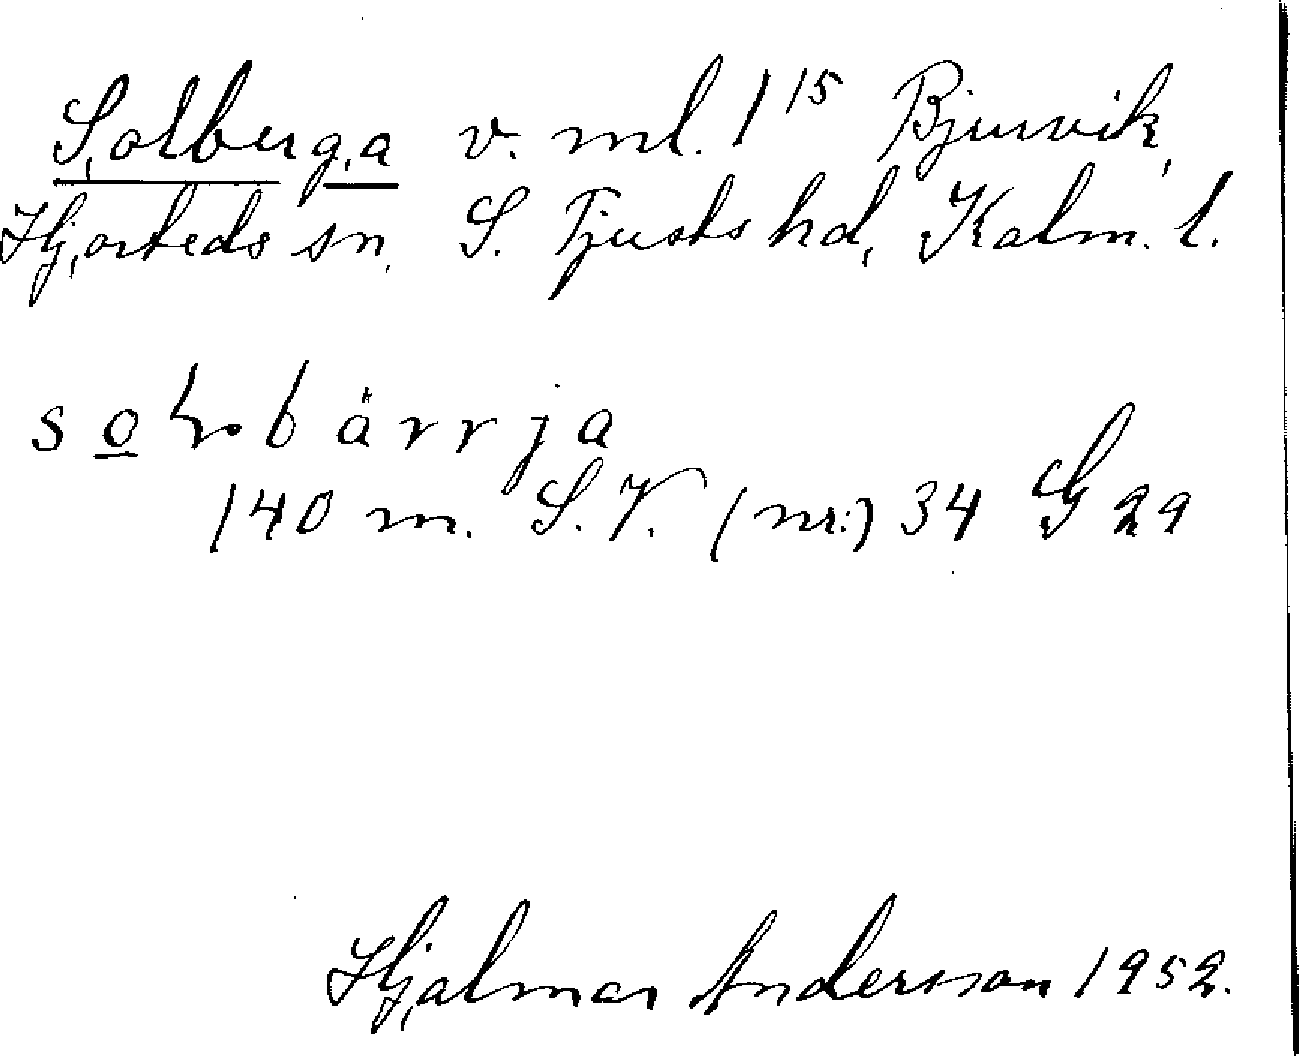 Solberga v. ml. 1¹⁵ Bjurvik,
Hjorteds sn. S. Tjusts hd, Kalm. l.
140 m. S.V. (nr:) 34 G 29
Hjalmar Andersson 1952.